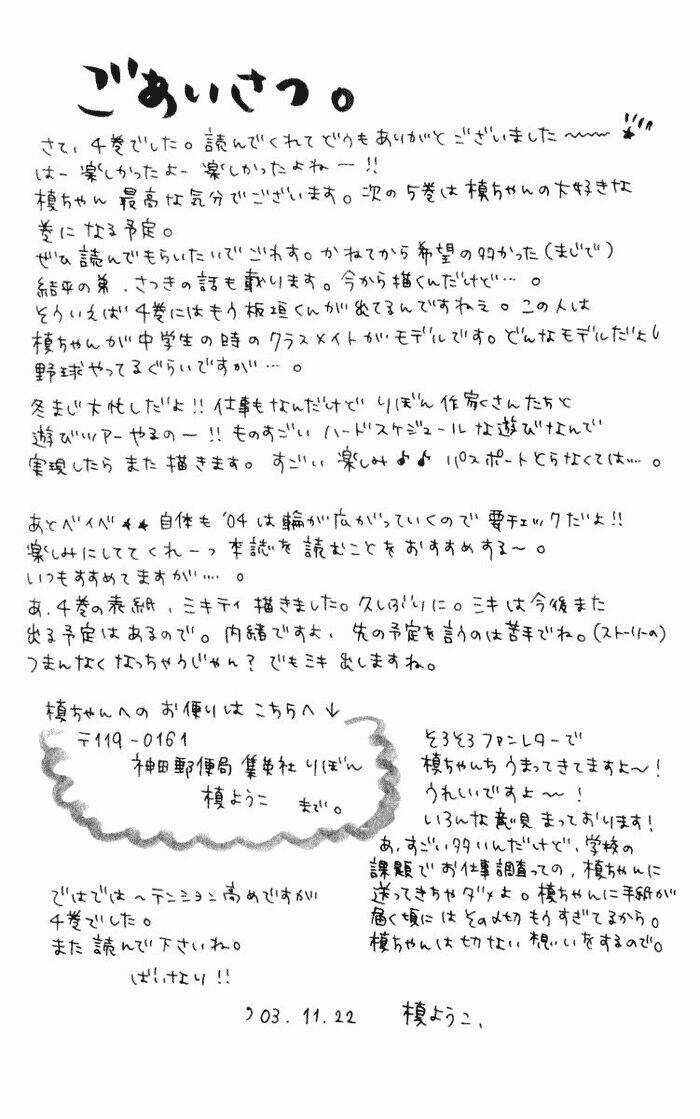 ごあいさつ。
さて、4巻でした。読んでくれてどうもありがとございました〜
はー楽しかったよー楽しかったよねー!!
槙ちゃん 最高な気分でございます。次の5巻は槙ちゃんの大好きな
巻になる予定。
ぜひ読んでもらいたいでごわす。かねてから希望の多かった(まじで)
結平の弟、さつきの話も載ります。今から描くんだけど…。
そういえば4巻にはもう板垣くんが出てるんですねえ。この人は
槙ちゃんが中学生の時のクラスメイトがモデルです。どんなモデルだよ
野球やってるぐらいですが…。
冬まじ大忙しだよ!!仕事もなんだけど りぼん作家さんたちと
遊びツアーやるのー!!ものすごい ハードスケジュールな遊びなんで
実現したら また描きます。すごい楽しみ♪♪ パスポートとらなくては…。
あとベイベ★★自体も'04は輪が広がっていくので要チェックだよ!!
楽しみにしててくれーっ 本誌を読むことをおすすめする〜。
いつもすすめてますが…。
あ、4巻の表紙、ミキティ描きました。久しぶりに。ミキは今後また
出る予定はあるので。内緒ですよ、先の予定を言うのは苦手でね。(ストーリーの)
つまんなくなっちゃうじゃん?でもミキ出しますね。
槙ちゃんへの お便りは こちらへ↓
〒119-0161
神田郵便局 集英社 りぼん
槙ようこ まで。
そろそろファンレターで
槙ちゃんち うまってきてますよ〜!
うれしいですよ〜!
いろんな意見まっております!
あ、すごい多いんだけど、学校の
課題でお仕事調査っての、槙ちゃんに
送ってきちゃダメよ。槙ちゃんに手紙が
届く頃には その〆切もうすぎてるから。
槙ちゃんは切ない 想いをするので。
ではでは〜テンション高めですが
4巻でした。
また読んで下さいね。
ばいなり!!
'03.11.22 槙ようこ、